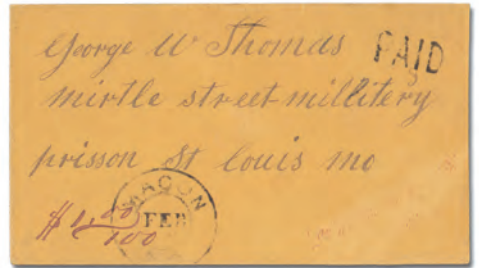 George W Thomas
PAID
3
mirtle street millitery
prisson St louis mo
MACON
FEB
$1,00/100